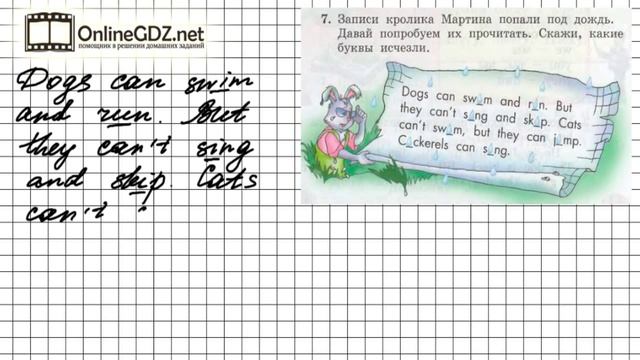 OnlineGDZ.net
помощник в решении домашних заданий
Dogs can swim
and run. But
they can't sing
and skip. Cats
can't
7. Записи кролика Мартина попали под дождь.
Давай попробуем их прочитать. Скажи, какие
буквы исчезли.
Dogs can sw m and r n. But
they can't s ng and sk p. Cats
can't sw m, but they can j mp.
C ckerels can s ng.